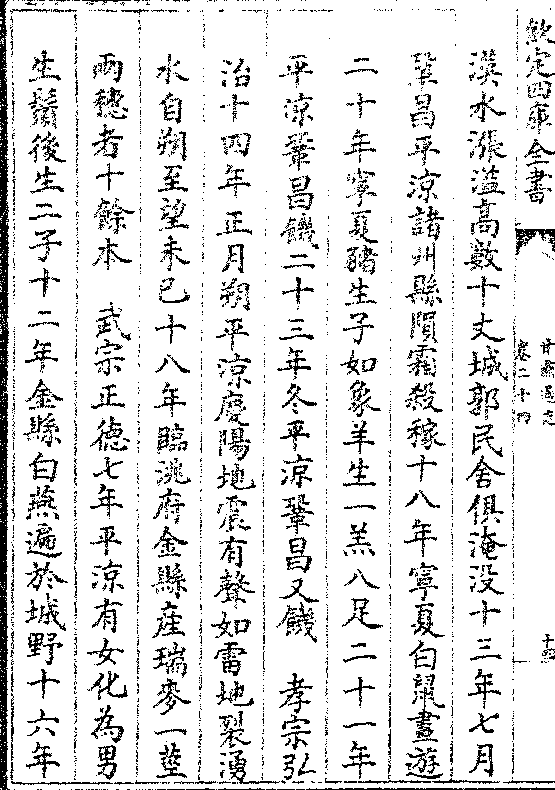 欽定四庫全書
甘肅通志
卷二十四
漢水漲溢髙數十丈城郭民舍俱淹没十三年七月
鞏昌平涼諸州縣隕霜殺稼十八年寧夏白鼠晝遊
二十年寧夏豬生子如象羊生一羔八足二十一年
平涼鞏昌饑二十三年冬平涼鞏昌又饑　孝宗弘
治十四年正月朔平涼慶陽地震有聲如雷地裂湧
水自朔至望未已十八年臨洮府金縣産瑞麥一莖
兩穗者十餘本　武宗正德七年平涼有女化為男
生鬚後生二子十二年金縣白燕遍於城野十六年